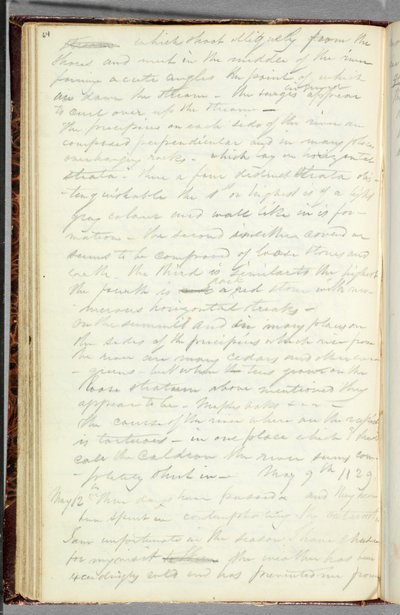 64
which shoot obliquely from the
shores and meet in the middle of the river
forming acute angles the point of which
are down the stream – the surges appear
to curl over up the stream –
The precipices on each side of the river are
composed perpendicular and in many places
overhanging rocks – which lay on horizontal
strata – there are four distinct strata dis
-tinguishable the 1st or highest is of a light
gray colour and wall like in its for-
mation – the second is either covered or
seems to be composed of loose stones and
earth – the third is similar to the highest
the fourth is a red stone with nu-
merous horizontal streaks –
on the summit and in many places on
the sides of the precipices which rise from
the river are many cedars and other ever
- greens – but when the trees grow on the
loose stratum above mentioned they
appear to be – Maples oaks
The course of the river where are the rapids
is tortuous – in one place which I should
call the Caldron the river seems com-
pletely shut in – May 9th 1829
May 12th Three days have passed and they have
been spent in contemplating
I am unfortunate in the season I have chosen
for my visit the weather has been
exceedingly cold and has prevented me from